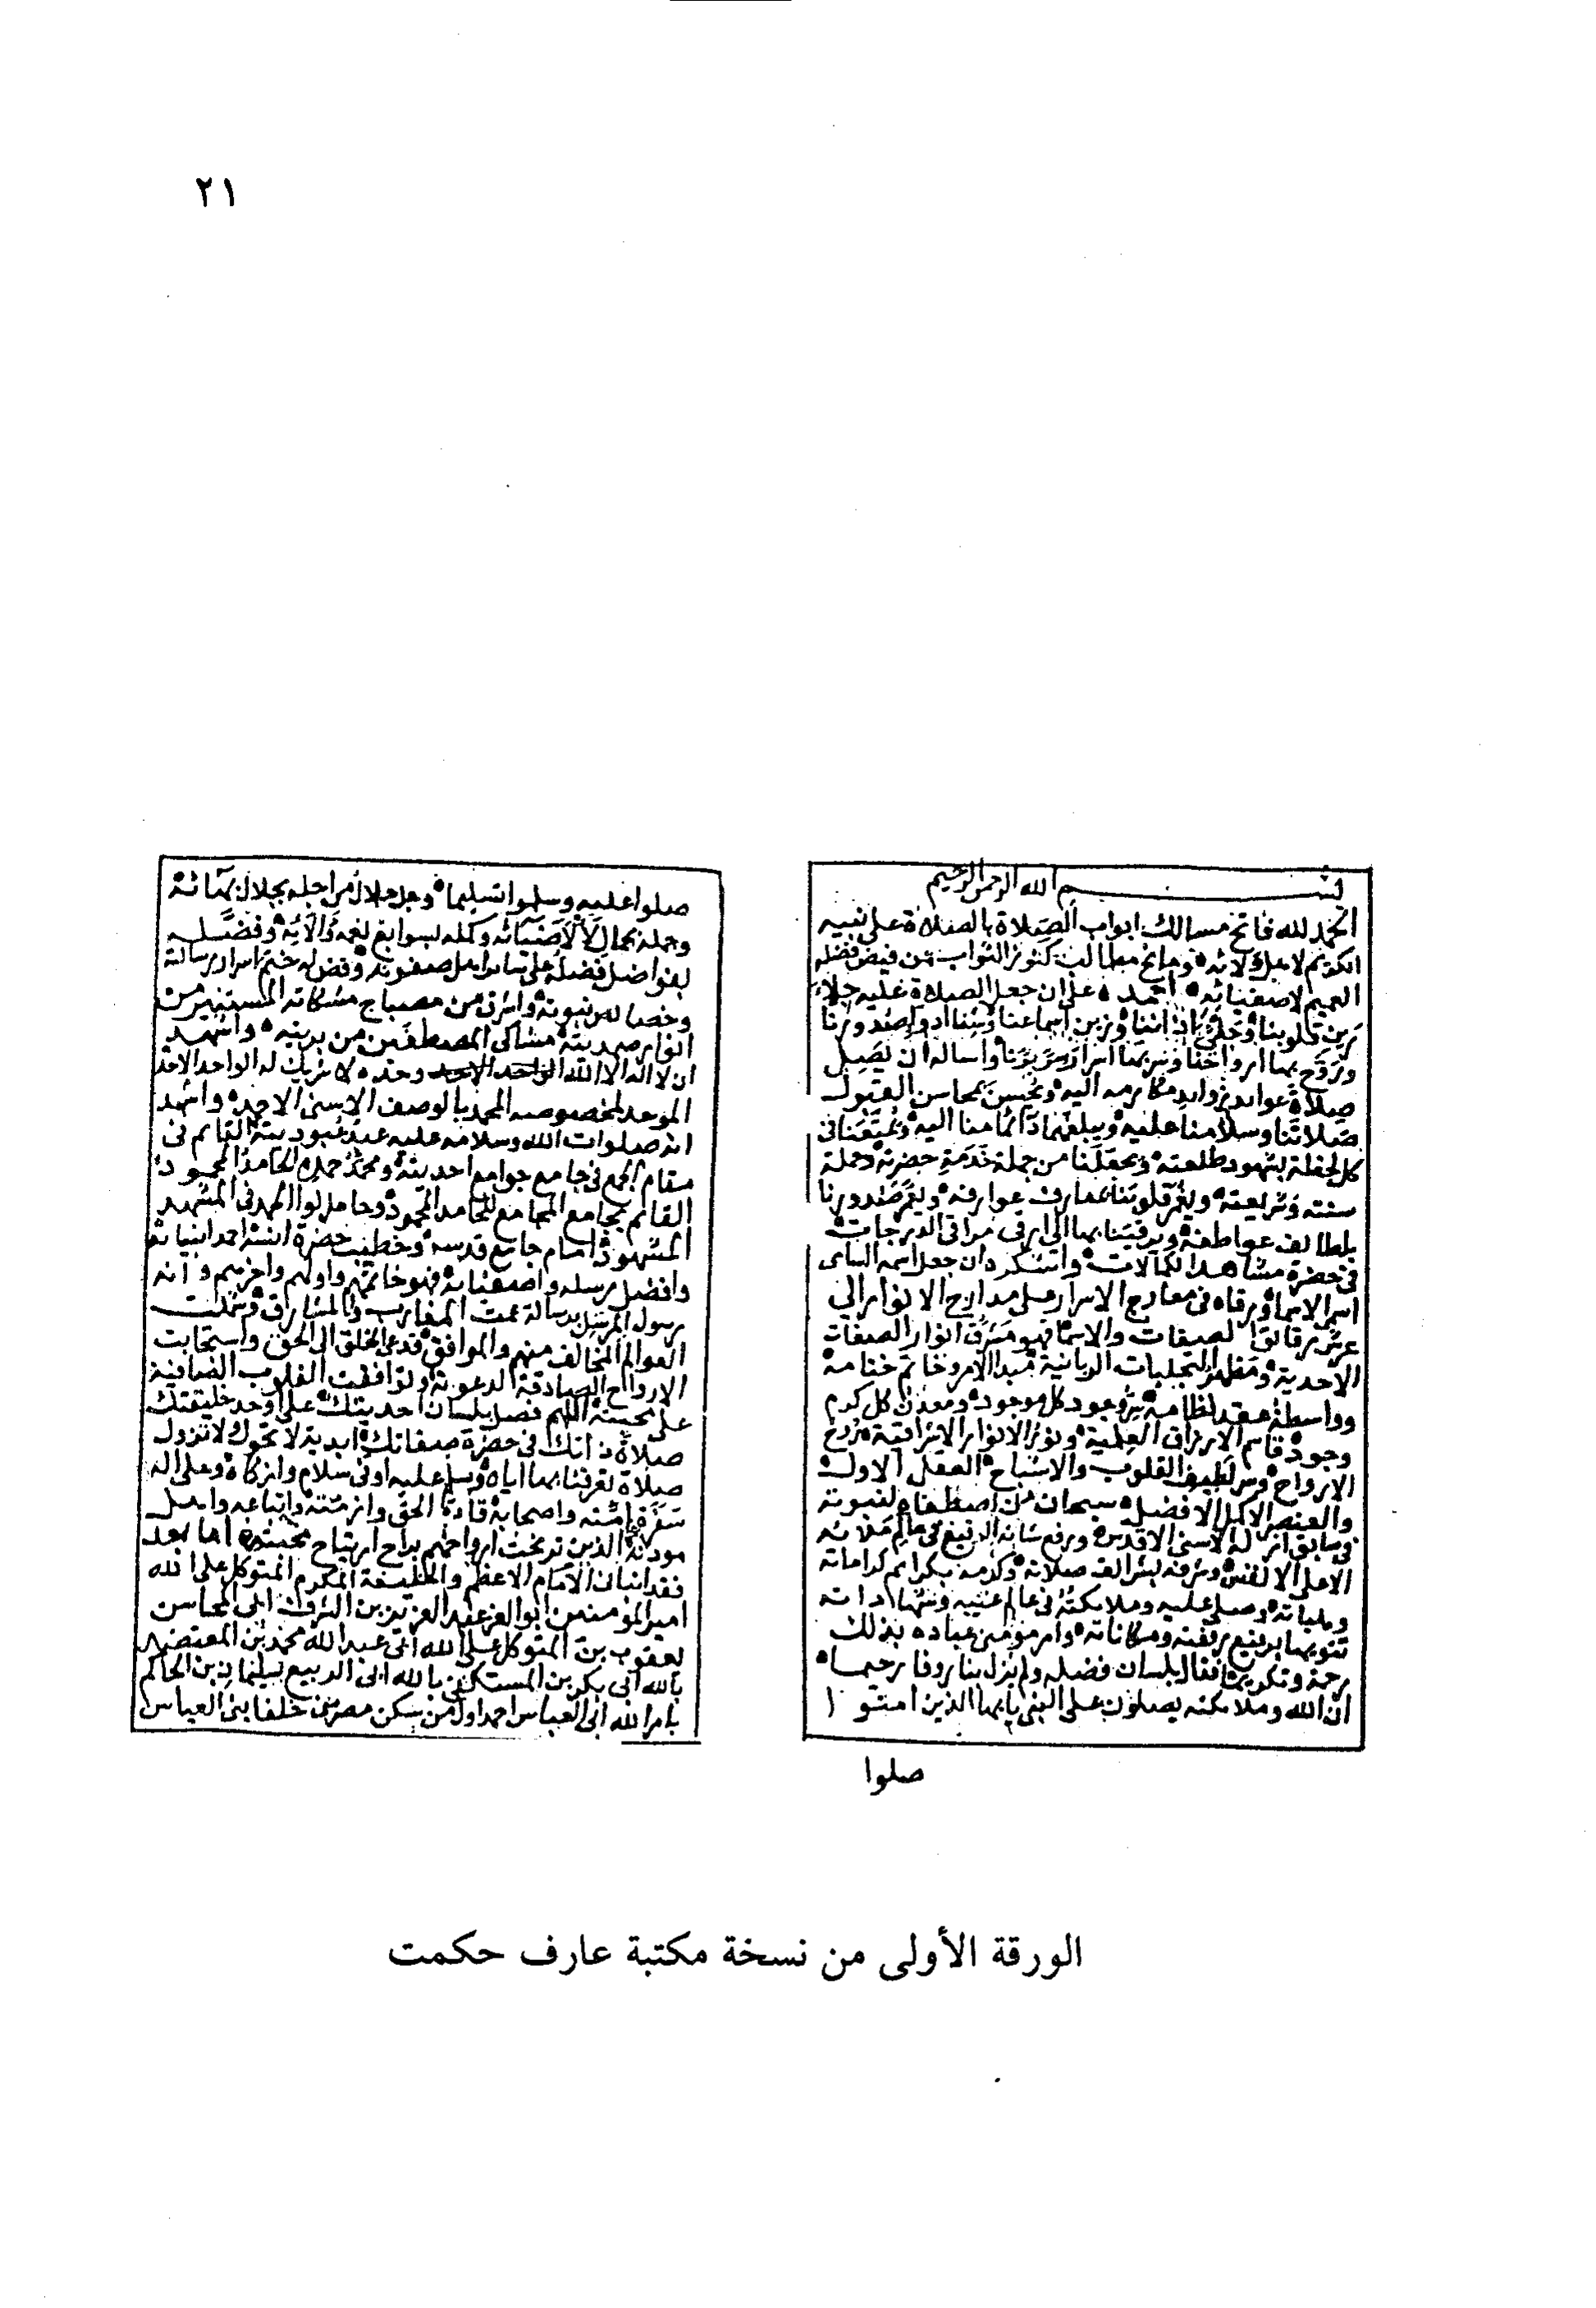 ٢١
بسم الله الرحمن الرحيم
الحمد لله فاتح مسالك ابواب الصلاة بالصلاة على نبيه
الكريم لاهل ولائه ومانح مطالب كنوز الثواب من فيض فضله
العميم لاصفيائه احمده على ان جعل الصلاة عليه جلاء
رين قلوبنا اذاننا وزين اسماعنا وشفا ادوا صدورنا
وروح بها ارواحنا اسرار واساله ان يصل
صلاة عوايد زوايد مكارمه اليه ويحسن بمحاسن القبول
صلاتنا وسلامنا عليه ويبلغهما دائما منا اليه في
كل لحظة بشهود طلعته ويجعلنا من جملة خدمة حضرته وحملة
سنته وشريعته قلوبنا بمعارف عوارفه صدورنا
بلطائف عواطفه ويرقينا بها الى ارقى مراقي الدرجات
في حضرة مشاهد الكمالات ان جعل اسمه السامى
اسمى الاسما ورقاه في معارج الاسرار على مدارج الانوار الي
عرش الصفات والاسما فهو مشرق انوار الصفات
الاحدية ومظهر التجليات الربانية مبدا الامر وخاتم ختامه
وواسطة عقد نظامه وجود كل موجود ومعدن كل كرم
وجود قاسم الارزاق العلمية ونور الانوار الاشراقية روح
الارواح وسر لطيف القلوب والاشباح العقل الاول
والعنصر الاكمل الافضل سبحان من اصطفاه لنبوته
في سابق الاسنى الاقدس ورفع شانه الرفيع في عالم
الاعلى الانفس وشرفه بشرائف صلاته وكرمه بكرايم كراماته
وصلى عليه وملائكته في عالم غيبه
تنويها برفيع وامر مومني عباده بذلك
رحمة وتكريما فقال بلسان فضله ولم يزل بنا روفا رحيما
ان الله وملائكته يصلون على النبي يا ايها الذين امنوا
صلوا
صلوا عليه وسلموا تسليما بجلال
وجمله وكمله بسوابغ نعمه وآلائه وفضله
بفواضل فضله على سائر اهل صفوته
نبوته واشرق من مصباح مشكاته
انوار صمديته مشاكي المصطفين من بريته واشهد
ان لا اله الا الله وحده لا شريك له الواحد الاحد
الموحد بالوصف الاسنى الامجد واشهد
انه صلوات الله وسلامه عليه عبد عبوديته القائم في
مقام الجمع في جامع جوامع احديته ومحمد حمده الحامد المحمود
القائم بجامع المجامع للحامد المحمود وحامل لوا الحمد في المشهد
المشهود امام جامع قدسه وخطيب حضرة انسه احمد انبيائه
وافضل رسله واصفيائه فهو خاتمهم واولهم واخرهم وانه
رسول المرسل برسالة عمت المغارب والمشارق وشملت
العوالم المخالف منهم والموافق فدعى الخلق الى الحق واستجابت
الارواح الصادقة لدعوته وتوافقت القلوب الصافية
على محبته اللهم فصل بلسان احديتك على اوحد خليقتك
صلاة ذاتك في حضرة صفاتك ابدية لا تحول ولا تزول
صلاة تعرفنا بها اياه وسلم عليه اوفى سلام وازكاه وعلى اله
واصحابه قادة الحق وازمته واتباعه واهل
مودته الذين ترنحت ارواحهم براح ارتياح محبته اما بعد
فقد الامام الاعظم والخليفة المكرم المتوكل على الله
امير المؤمنين ابو العز عبد العزيز بن الشرف ابى المحاسن
يعقوب بن المتوكل على الله ابى عبد الله محمد بن المعتضد
بالله ابى بكر بن المستكفى بالله ابى الربيع سليمان بن الحاكم
بامر الله ابى العباس احمد اول من سكن مصر من خلفا بنى العباس
الورقة الأولى من نسخة مكتبة عارف حكمت